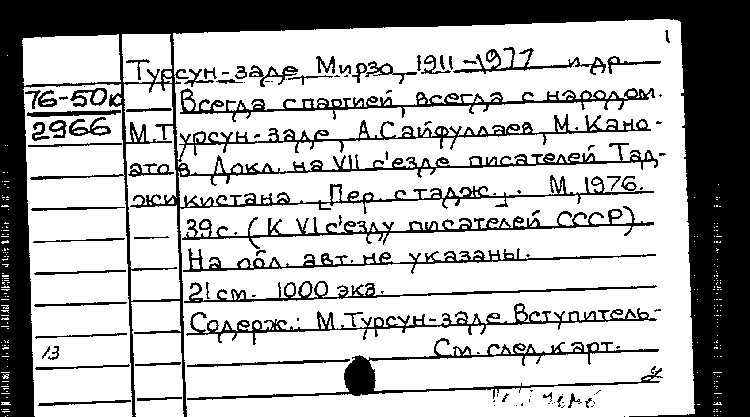 1
Турсун-заде, Мирзо, 1911-1977 и др.
76-50к Всегда с партией, всегда с народом.
2966 М.Турсун-заде, А.Сайфуллаев, М.Кано-
атов. Докл. на VII с'езде писателей Тад-
жикистана. [Пер. с тадж.]. М., 1976.
39с. (К VI с'езду писателей СССР).
На обл. авт. не указаны.
21см. 1000 экз.
Содерж.: М.Турсун-заде. Вступитель-
13 См. след. карт.